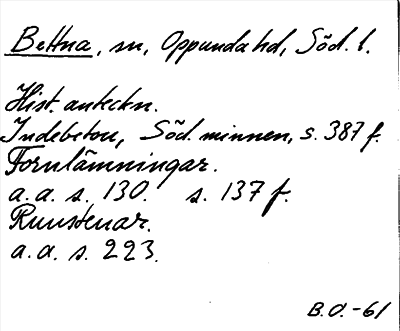 Bettna, sn, Oppunda hd, Söd. l.
Hist. anteckn.
Indebetou, Söd. minnen, s. 387 f.
Fornlämningar.
a.a. s. 130. s. 137 f.
Runstenar.
a.a. s. 223.
B.O.-61